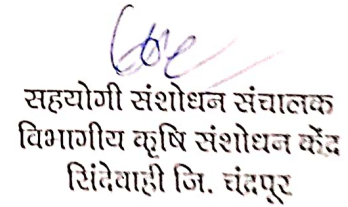 सहयोगी संशोधन संचालक
विभागीय कृषि संशोधन केंद्र
सिंदेवाही जि. चंद्रपूर